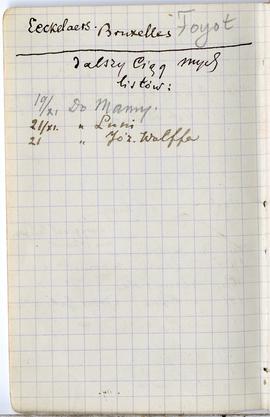 Eeckelaers. Bruxelles Foyot
Dalszy Ciąg mych
listów:
19/XI. Do Mamy.
21/XI. " Luni
21 " Józ. Wolffa